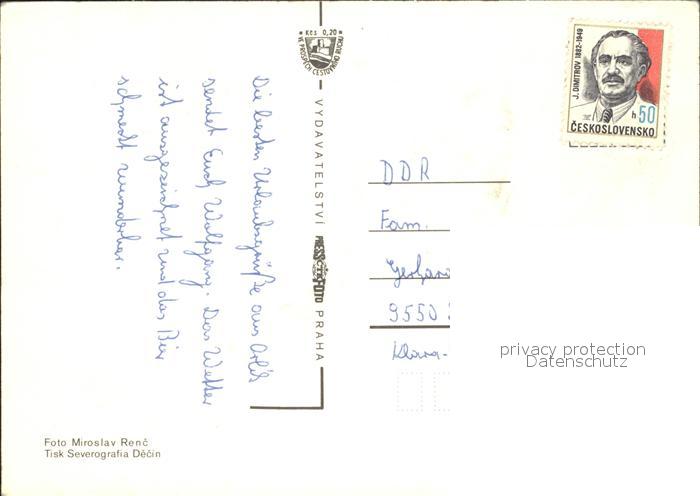 Die besten Urlaubsgrüße aus
sendet Euch Wolfgang. Das Wetter
ist ausgezeichnet und das Bier
schmeckt wunderbar.
Kčs 0,20
VE PROSPĚCH CESTOVNÍHO RUCHU
VYDAVATELSTVÍ PRESSFOTO PRAHA
ČTK
J. DIMITROV 1882-1949
h 50
ČESKOSLOVENSKO
DDR
Fam.
Gerhar
9550
Klara-
privacy protection
Datenschutz
Foto Miroslav Renč
Tisk Severografia Děčín